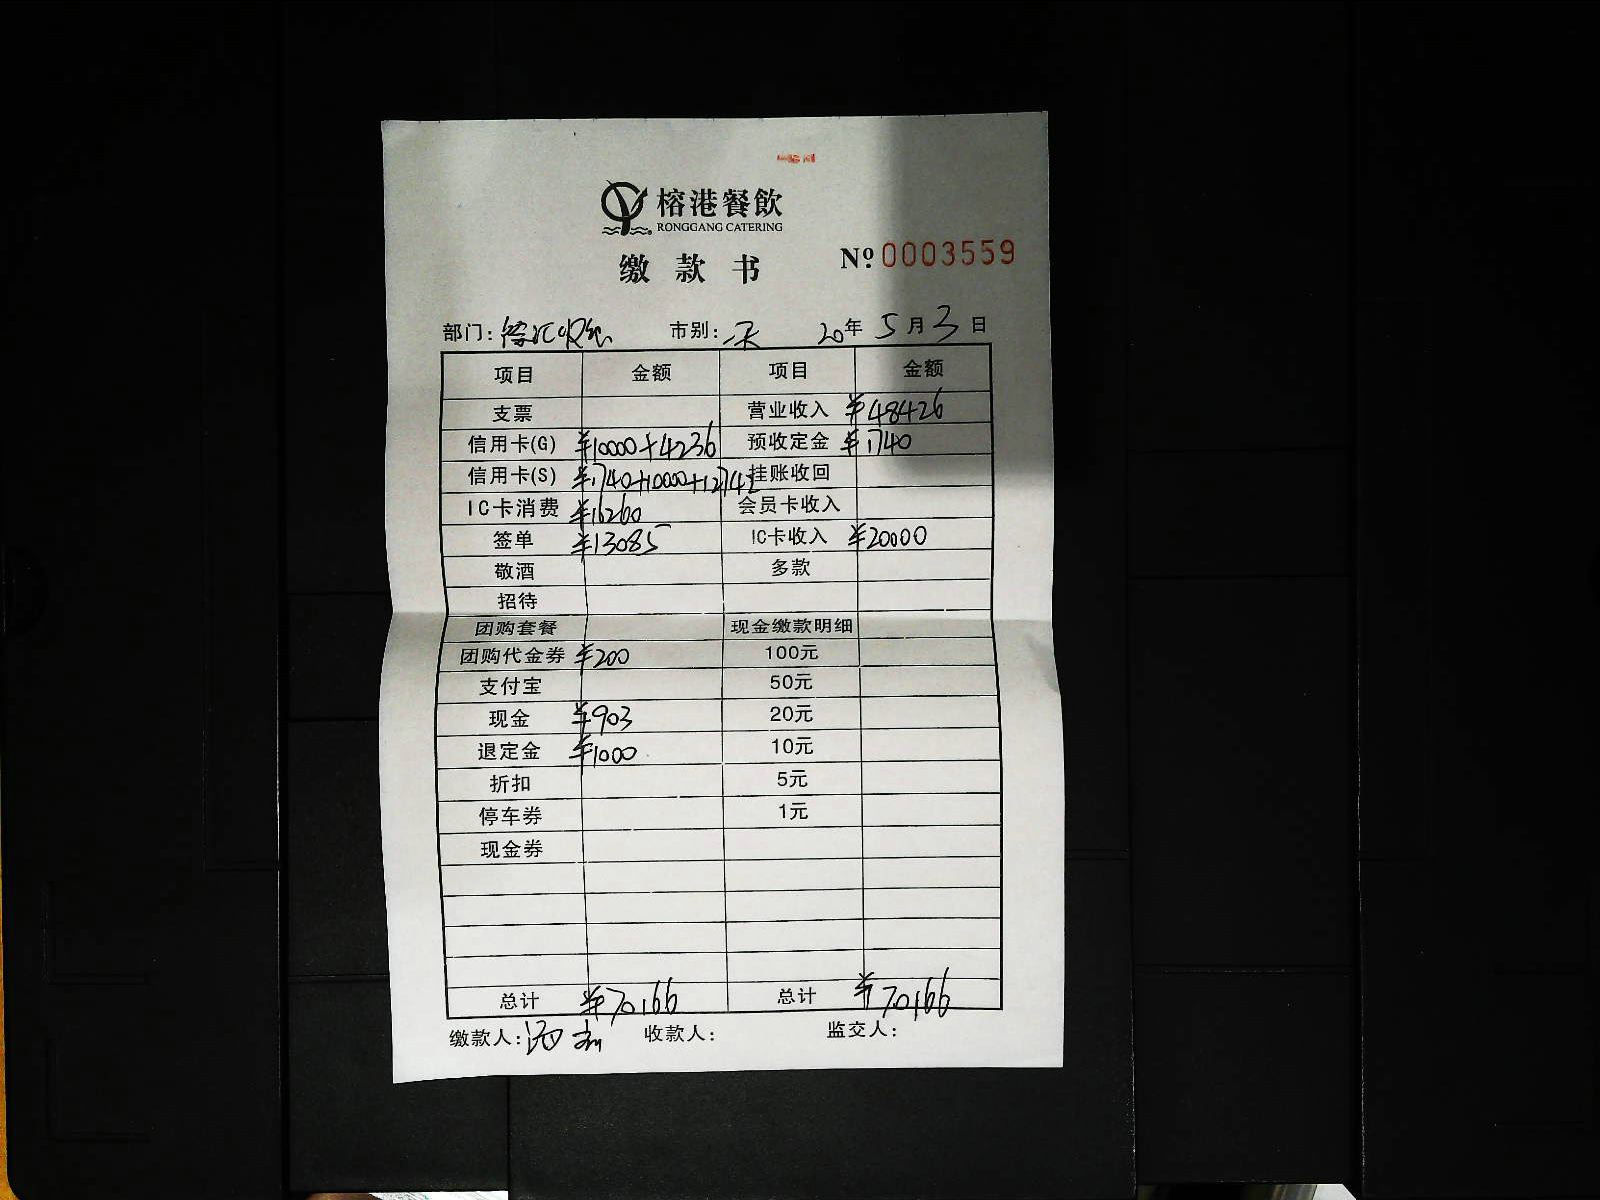 榕港餐飲
RONGGANG CATERING
缴款书 Nº 0003559
部门: 榕汇收银 市别: 20年 5月3日
项目 金额 项目 金额
支票 营业收入 ¥48426
信用卡(G) ¥10000+4236 预收定金 ¥1740
信用卡(S) ¥1740+10000+12742 挂账收回
IC卡消费 ¥16260 会员卡收入
签单 ¥13085 IC卡收入 ¥20000
敬酒 多款
招待
团购套餐 现金缴款明细
团购代金券 ¥200 100元
支付宝 50元
现金 ¥903 20元
退定金 ¥1000 10元
折扣 5元
停车券 1元
现金券
总计 ¥70166 总计 ¥70166
缴款人: 收款人: 监交人: